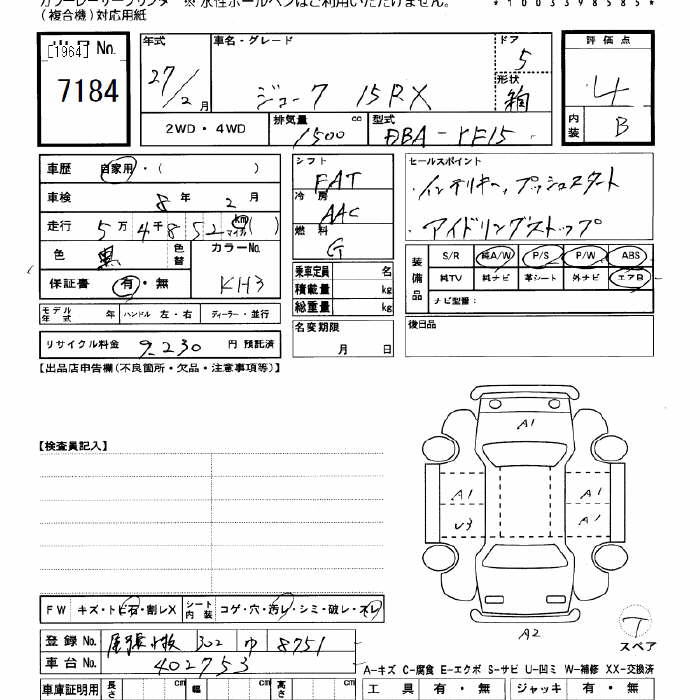 カラーレーザープリンター ※ 水性ボールペンはご利用いただけません。
(複合機)対応用紙
*1003398585*
[1964] No.
7184
年式 27/2月
車名・グレード ジューク 15RX
ドア 5
形状 箱
評価点 4
内装 B
2WD・4WD
排気量 1500 cc
型式 DBA-YF15
車歴 自家用・( )
車検 8年 2月
走行 5万4千852 km マイル ( )
色 黒 色替
カラーNo. KH3
保証書 有・無
モデル年式 年 ハンドル 左・右 ディーラー・並行
リサイクル料金 9,230 円 預託済
シフト FAT
冷房 AAC
燃料 G
乗車定員 名
積載量 kg
総重量 kg
名変期限
月 日
セールスポイント
・インテリキー、プッシュスタート
・アイドリングストップ
装備品
S/R 純A/W P/S P/W ABS
純TV 純ナビ 革シート 外ナビ エアB
ナビ型番:
後日品
【出品店申告欄(不良箇所・欠品・注意事項等)】
【検査員記入】
A1
A1 A1
U3 A1
A2
T
スペア
FW キズ・トビ石・割レX シート内装 コゲ・穴・汚レ・シミ・破レ・スレ
登録No. 尾張小牧 302 ゆ 8751
車台No. 402753
車庫証明用 長さ cm 幅 cm 高さ cm
A-キズ C-腐食 E-エクボ S-サビ U-凹ミ W-補修 XX-交換済
工具 有・無 ジャッキ 有・無